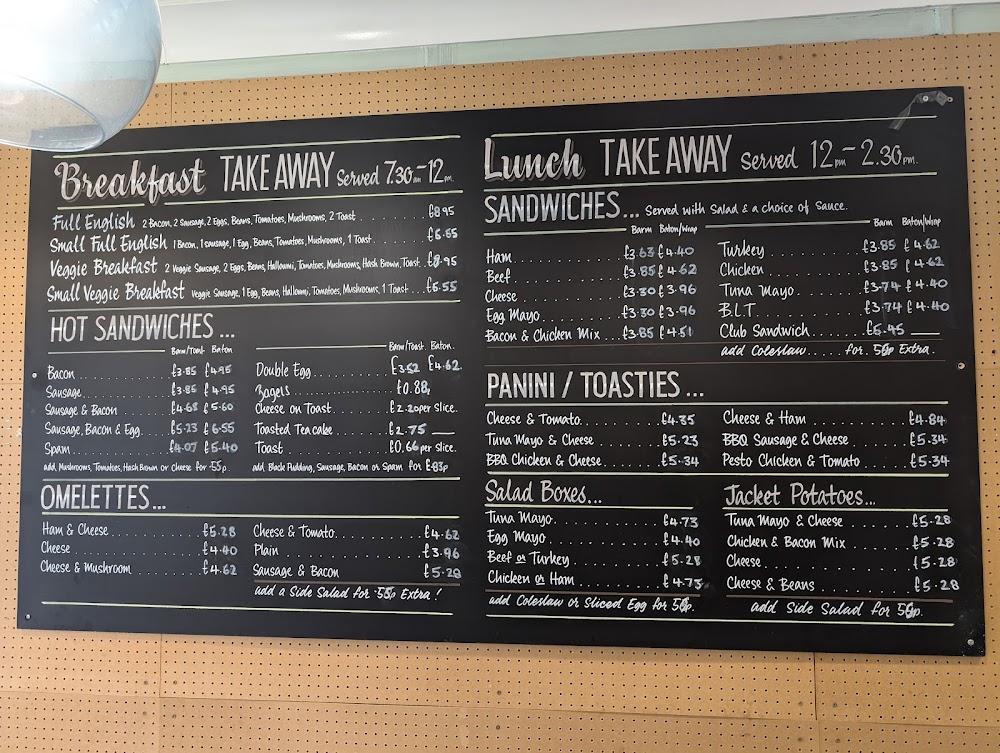 Breakfast TAKE AWAY Served 7.30am-12pm.
Full English 2 Bacon, 2 Sausage, 2 Eggs, Beans, Tomatoes, Mushrooms, 2 Toast £8.95
Small Full English 1 Bacon, 1 Sausage, 1 Egg, Beans, Tomatoes, Mushrooms, 1 Toast £6.55
Veggie Breakfast 2 Veggie Sausage, 2 Eggs, Beans, Halloumi, Tomatoes, Mushrooms, Hash Brown, Toast £8.95
Small Veggie Breakfast Veggie Sausage, 1 Egg, Beans, Halloumi, Tomatoes, Mushrooms, 1 Toast £6.55
HOT SANDWICHES...
Barm/Toast Baton
Bacon £3.85 £4.95
Sausage £3.85 £4.95
Sausage & Bacon £4.68 £5.60
Sausage, Bacon & Egg £5.23 £6.55
Spam £4.07 £5.40
add, Mushrooms, Tomatoes, Hash Brown or Cheese for 55p
Barm/Toast. Baton.
Double Egg £3.52 £4.62
Bagels £0.88
Cheese on Toast £2.20 per slice.
Toasted Teacake £2.75
Toast £0.66 per slice.
add Black Pudding, Sausage, Bacon or Spam for £.83p
OMELETTES...
Ham & Cheese £5.28
Cheese £4.40
Cheese & Mushroom £4.62
Cheese & Tomato £4.62
Plain £3.96
Sausage & Bacon £5.28
add a Side Salad for 55p Extra!
Lunch TAKE AWAY Served 12pm-2.30pm.
SANDWICHES... Served with Salad & a choice of Sauce.
Barm Baton/Wrap
Ham £3.63 £4.40
Beef £3.85 £4.62
Cheese £3.30 £3.96
Egg Mayo £3.30 £3.96
Bacon & Chicken Mix £3.85 £4.51
Barm Baton/Wrap
Turkey £3.85 £4.62
Chicken £3.85 £4.62
Tuna Mayo £3.74 £4.40
B.L.T. £3.74 £4.40
Club Sandwich £5.45
add Coleslaw for Extra.
PANINI / TOASTIES...
Cheese & Tomato £4.35
Tuna Mayo & Cheese £5.23
BBQ Chicken & Cheese £5.34
Cheese & Ham £4.84
BBQ Sausage & Cheese £5.34
Pesto Chicken & Tomato £5.34
Salad Boxes...
Tuna Mayo £4.73
Egg Mayo £4.40
Beef or Turkey £5.28
Chicken or Ham £4.73
add Coleslaw or Sliced Egg for
Jacket Potatoes...
Tuna Mayo & Cheese £5.28
Chicken & Bacon Mix £5.28
Cheese £5.28
Cheese & Beans £5.28
add Side Salad for